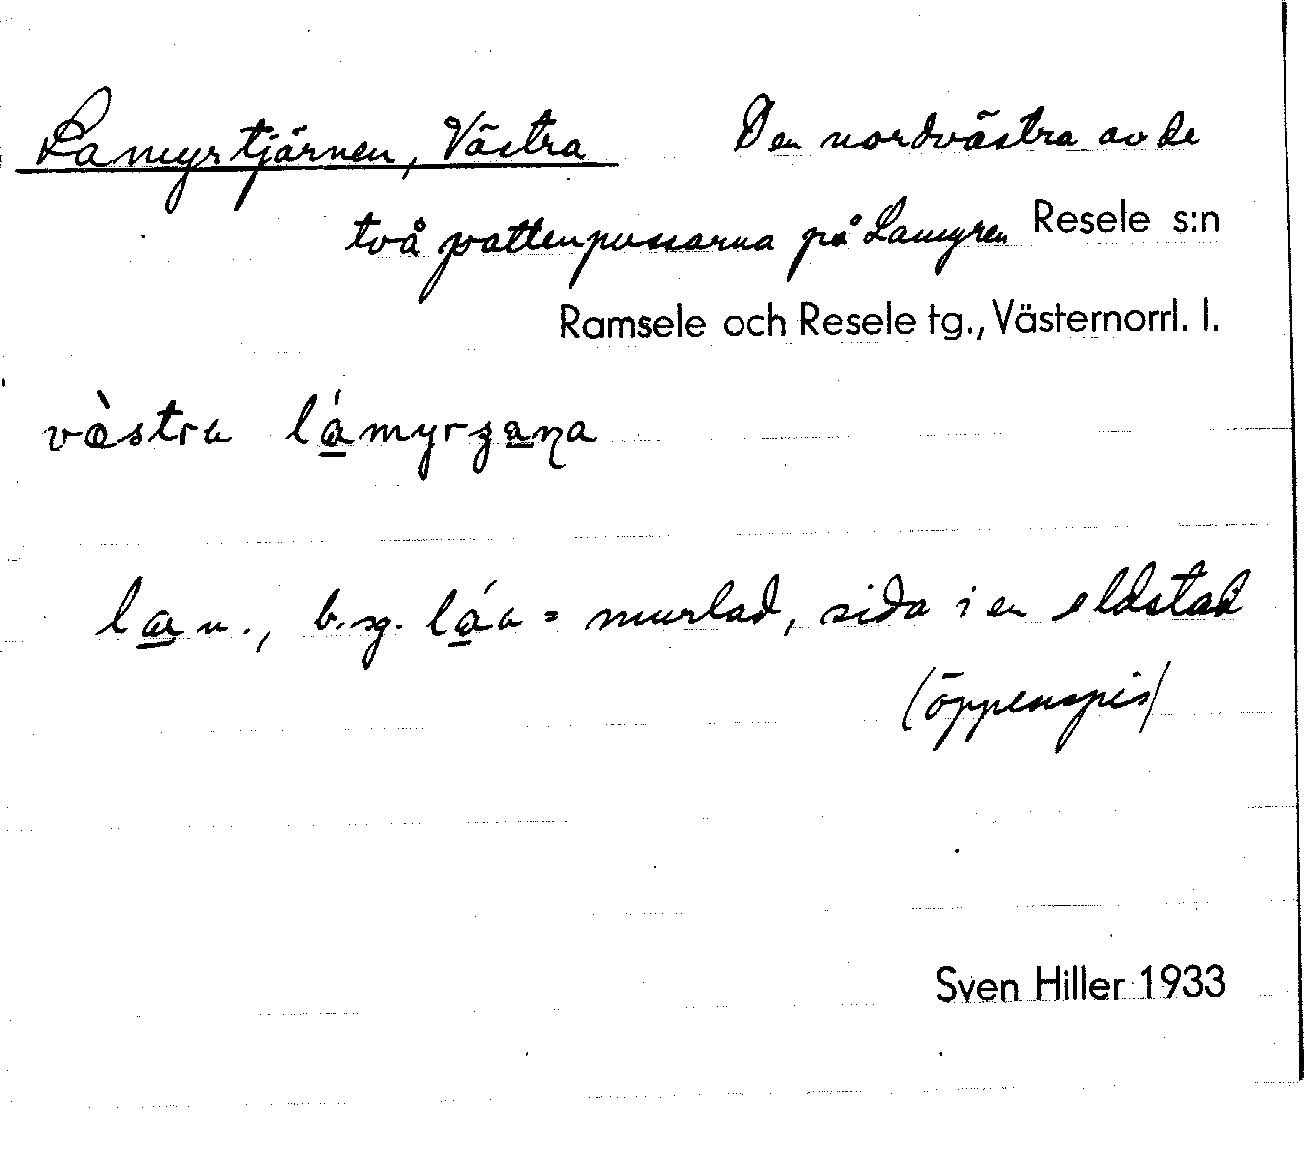 Lamyrtjärnen, Västra Den nordvästra av de
två vattenpussarna på Lamyren Resele s:n
Ramsele och Resele tg., Västernorrl. l.
vàstra lámyrzaṇa
la n., b. sg. láa = murlad, sida i en eldstad
(öppenspis)
Sven Hiller 1933